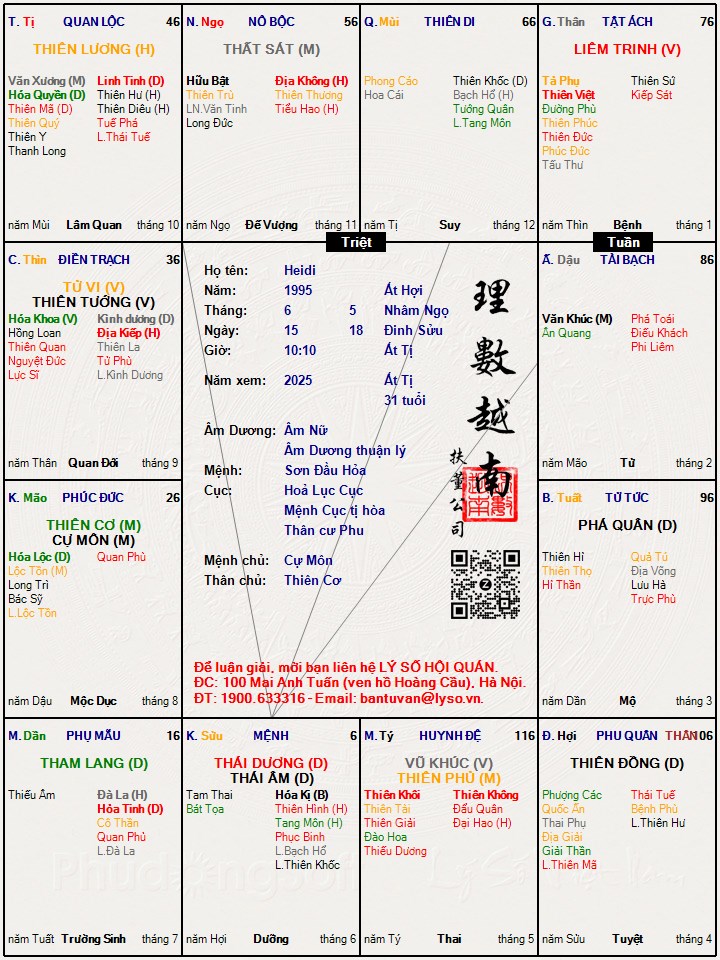 T. Tị QUAN LỘC 46
THIÊN LƯƠNG (H)
Văn Xương (M) Linh Tinh (D)
Hóa Quyền (D) Thiên Hư (H)
Thiên Mã (D) Thiên Diêu (H)
Thiên Quý Tuế Phá
Thiên Y L.Thái Tuế
Thanh Long
năm Mùi Lâm Quan tháng 10
N. Ngọ NÔ BỘC 56
THẤT SÁT (M)
Hữu Bật Địa Không (H)
Thiên Trù Thiên Thương
LN.Văn Tinh Tiểu Hao (H)
Long Đức
năm Ngọ Đế Vượng tháng 11
Q. Mùi THIÊN DI 66
Phong Cáo Thiên Khốc (D)
Hoa Cái Bạch Hổ (H)
Tướng Quân
L.Tang Môn
năm Tị Suy tháng 12
G. Thân TẬT ÁCH 76
LIÊM TRINH (V)
Tả Phụ Thiên Sứ
Thiên Việt Kiếp Sát
Đường Phù
Thiên Phúc
Thiên Đức
Phúc Đức
Tấu Thư
năm Thìn Bệnh tháng 1
Triệt
Tuần
C. Thìn ĐIỀN TRẠCH 36
TỬ VI (V)
THIÊN TƯỚNG (V)
Hóa Khoa (V) Kình dương (D)
Hồng Loan Địa Kiếp (H)
Thiên Quan Thiên La
Nguyệt Đức Tử Phù
Lực Sĩ L.Kình Dương
năm Thân Quan Đới tháng 9
Họ tên: Heidi
Năm: 1995 Ất Hợi
Tháng: 6 5 Nhâm Ngọ
Ngày: 15 18 Đinh Sửu
Giờ: 10:10 Ất Tị
Năm xem: 2025 Ất Tị
31 tuổi
Âm Dương: Âm Nữ
Âm Dương thuận lý
Mệnh: Sơn Đầu Hỏa
Cục: Hoả Lục Cục
Mệnh Cục tị hòa
Thân cư Phu
Mệnh chủ: Cự Môn
Thân chủ: Thiên Cơ
理數越南
扶董公司
Để luận giải, mời bạn liên hệ LÝ SỐ HỘI QUÁN.
ĐC: 100 Mai Anh Tuấn (ven hồ Hoàng Cầu), Hà Nội.
ĐT: 1900.633316 - Email: bantuvan@lyso.vn.
Ấ. Dậu TÀI BẠCH 86
Văn Khúc (M) Phá Toái
Ân Quang Điếu Khách
Phi Liêm
năm Mão Tử tháng 2
K. Mão PHÚC ĐỨC 26
THIÊN CƠ (M)
CỰ MÔN (M)
Hóa Lộc (D) Quan Phù
Lộc Tồn (M)
Long Trì
Bác Sỹ
L.Lộc Tồn
năm Dậu Mộc Dục tháng 8
B. Tuất TỬ TỨC 96
PHÁ QUÂN (D)
Thiên Hỉ Quả Tú
Thiên Thọ Địa Võng
Hỉ Thần Lưu Hà
Trực Phù
năm Dần Mộ tháng 3
M. Dần PHỤ MẪU 16
THAM LANG (D)
Thiếu Âm Đà La (H)
Hỏa Tinh (D)
Cô Thần
Quan Phủ
L.Đà La
năm Tuất Trường Sinh tháng 7
K. Sửu MỆNH 6
THÁI DƯƠNG (D)
THÁI ÂM (D)
Tam Thai Hóa Kị (B)
Bát Tọa Thiên Hình (H)
Tang Môn (H)
Phục Binh
L.Bạch Hổ
L.Thiên Khốc
năm Hợi Dưỡng tháng 6
M. Tý HUYNH ĐỆ 116
VŨ KHÚC (V)
THIÊN PHỦ (M)
Thiên Khôi Thiên Không
Thiên Tài Đẩu Quân
Thiên Giải Đại Hao (H)
Đào Hoa
Thiếu Dương
năm Tý Thai tháng 5
Đ. Hợi PHU QUÂN THÂN 106
THIÊN ĐỒNG (D)
Phượng Các Thái Tuế
Quốc Ấn Bệnh Phù
Thai Phụ L.Thiên Hư
Địa Giải
Giải Thần
L.Thiên Mã
năm Sửu Tuyệt tháng 4